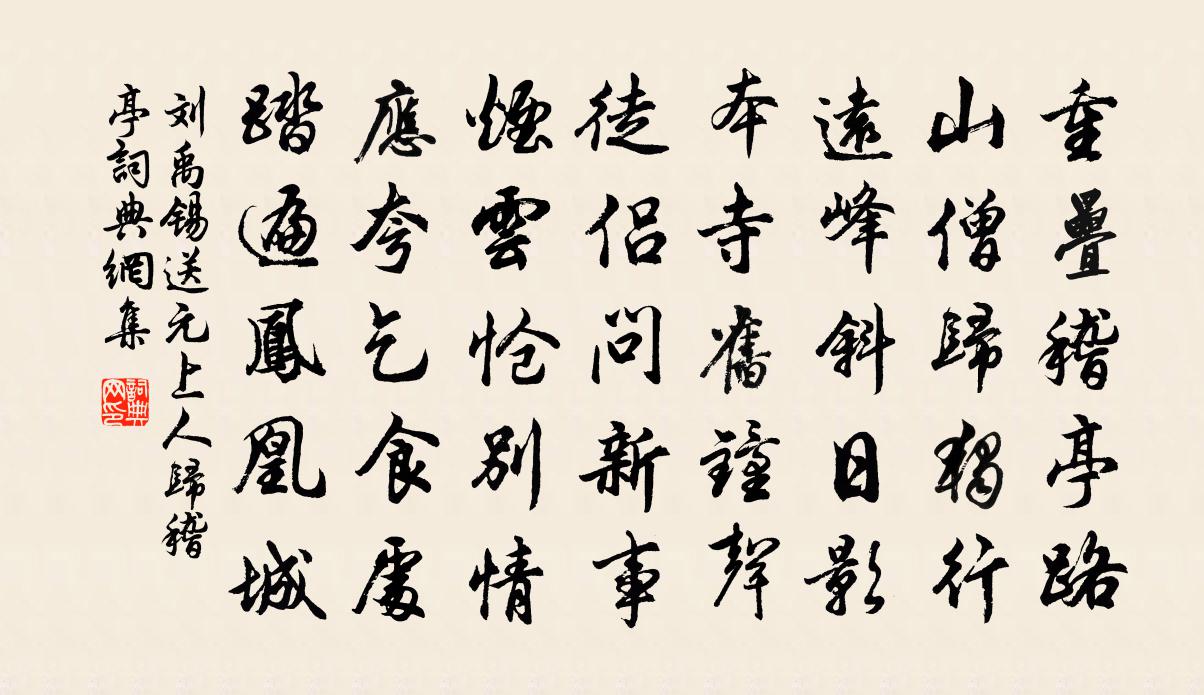 重疊稽亭路
山僧歸獨行
遠峰斜日影
本寺舊鐘聲
徒侶問新事
煙雲怆別情
應夸乞食處
踏遍鳳凰城
刘禹锡送元上人歸稽
亭詞典網集
詞典网印